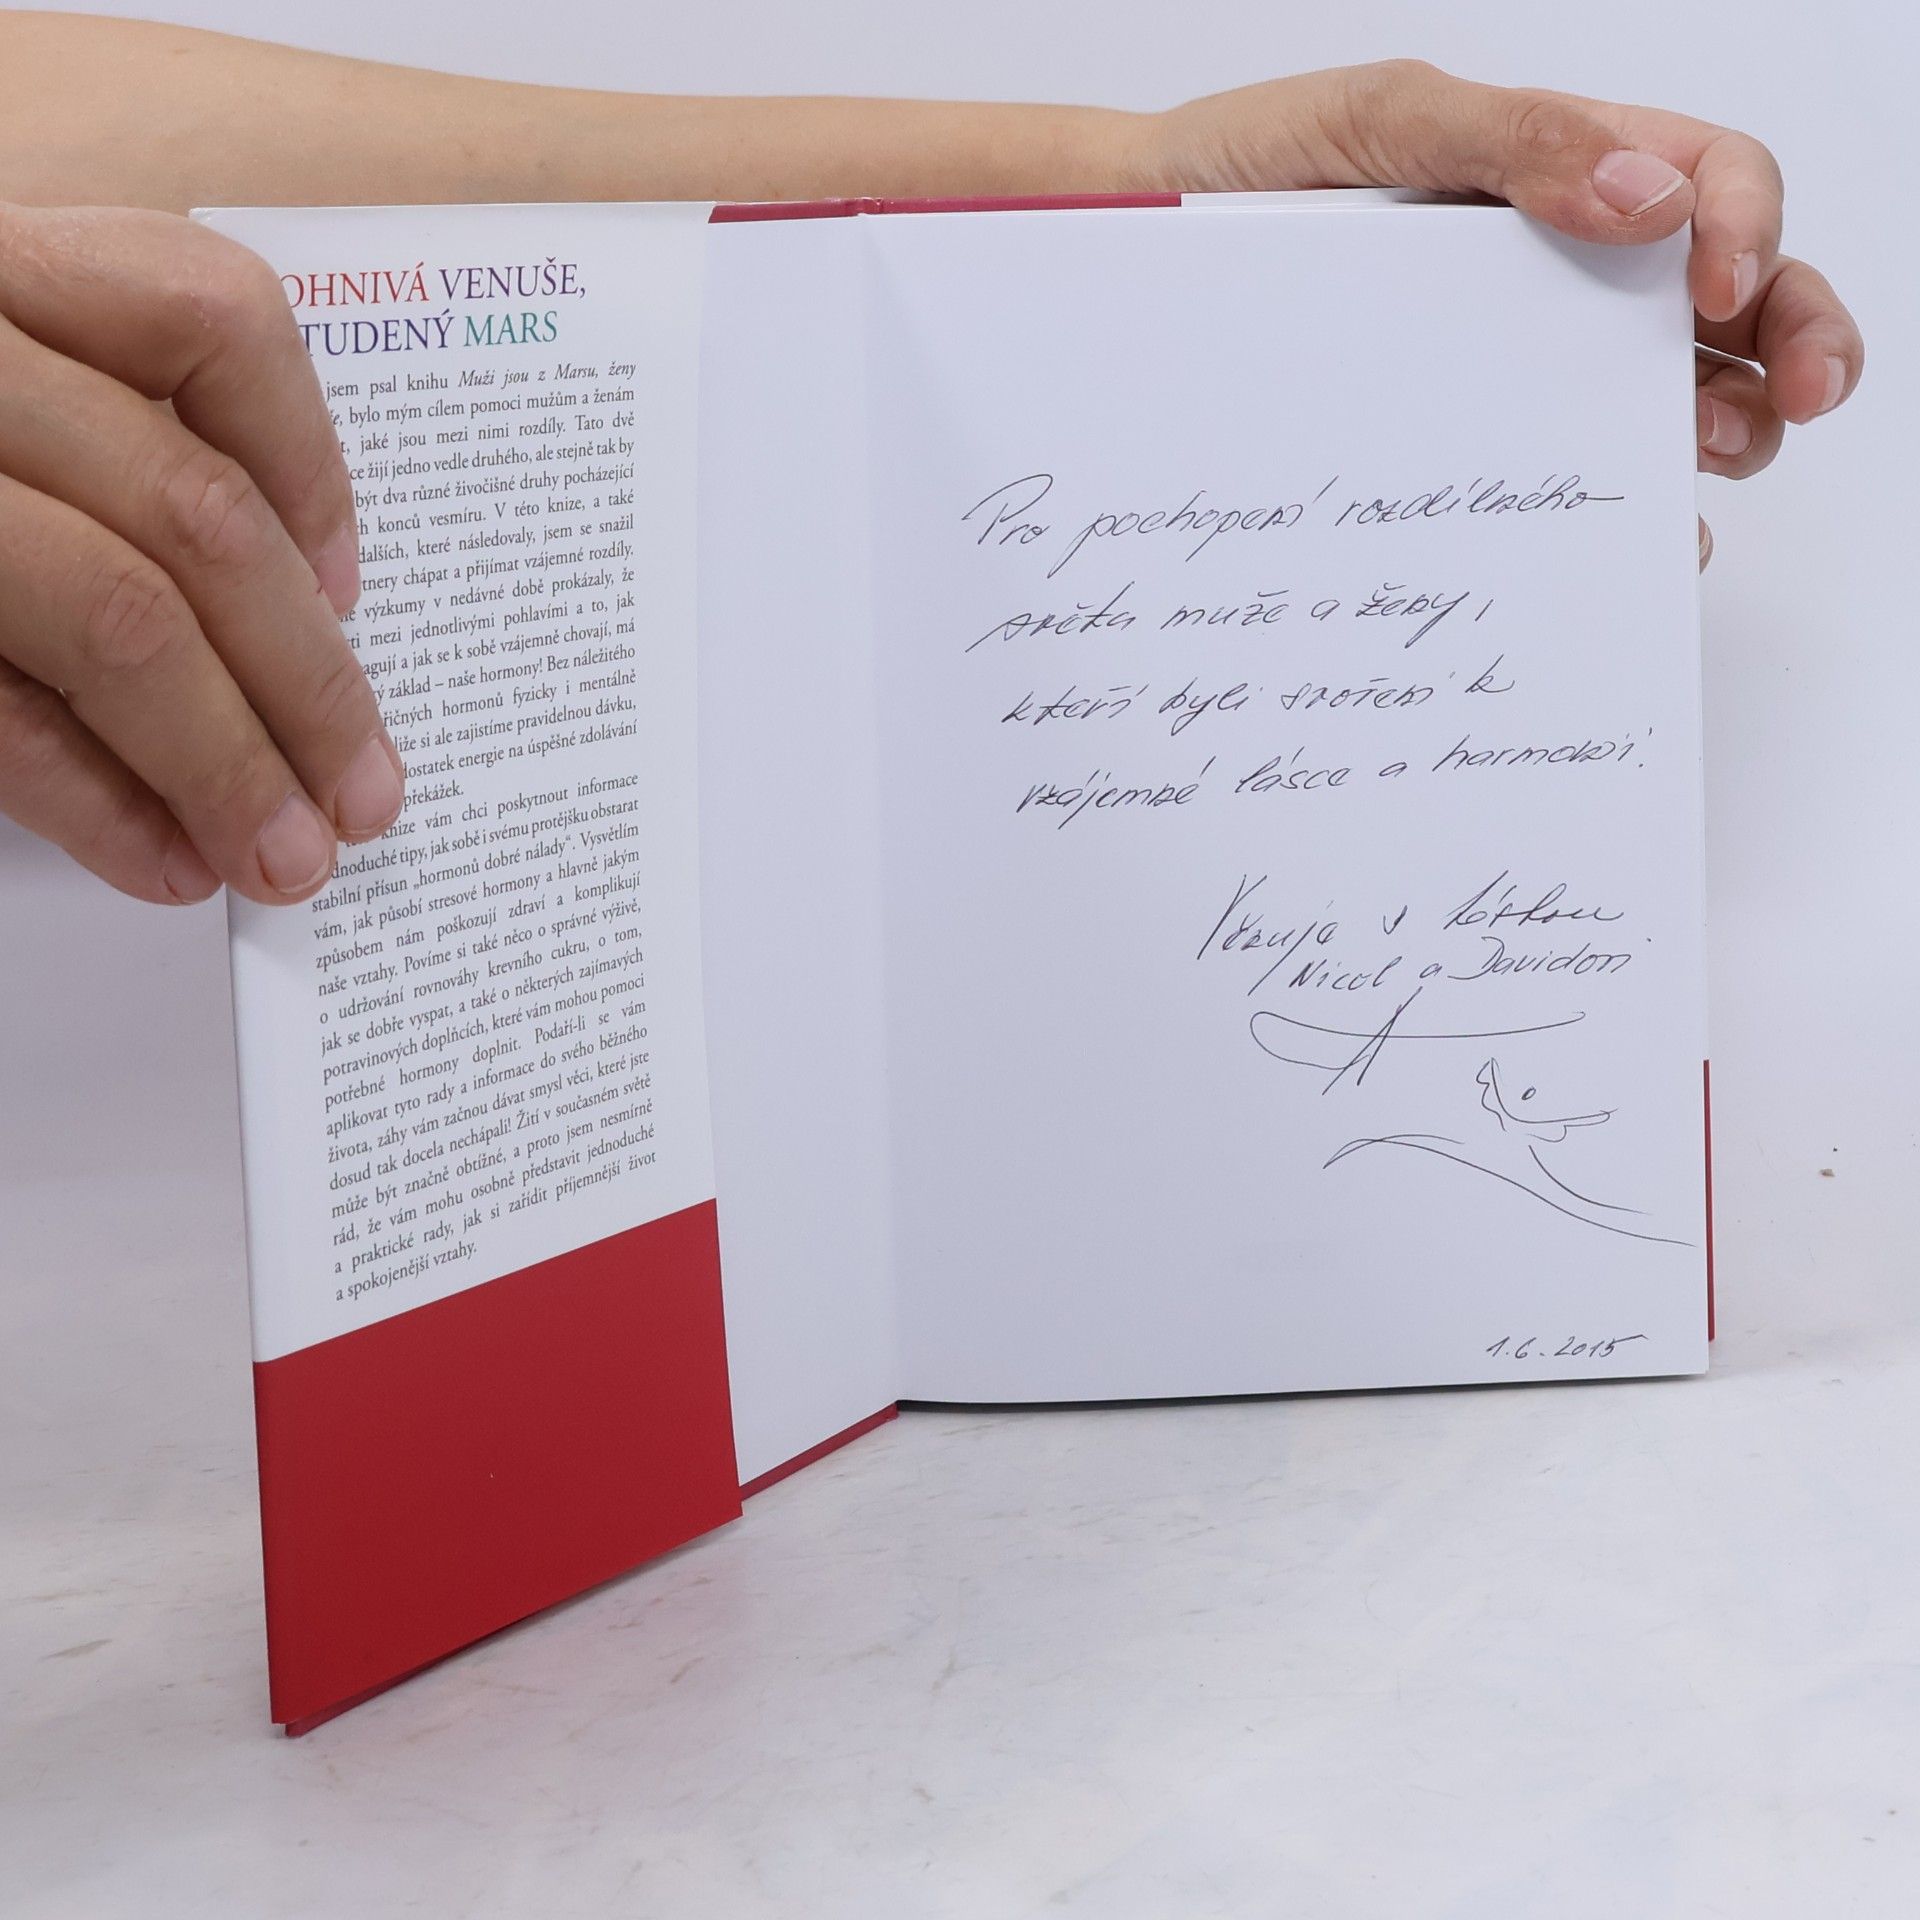 OHNIVÁ VENUŠE,
TUDENÝ MARS
jsem psal knihu Muži jsou z Marsu, ženy
e, bylo mým cílem pomoci mužům a ženám
t, jaké jsou mezi nimi rozdíly. Tato dvě
ce žijí jedno vedle druhého, ale stejně tak by
být dva různé živočišné druhy pocházející
h konců vesmíru. V této knize, a také
dalších, které následovaly, jsem se snažil
tnery chápat a přijímat vzájemné rozdíly.
né výzkumy v nedávné době prokázaly, že
ti mezi jednotlivými pohlavími a to, jak
agují a jak se k sobě vzájemně chovají, má
ý základ – naše hormony! Bez náležitého
řičných hormonů fyzicky i mentálně
liže si ale zajistíme pravidelnou dávku,
dostatek energie na úspěšné zdolávání
překážek.
knize vám chci poskytnout informace
dnoduché tipy, jak sobě i svému protějšku obstarat
stabilní přísun „hormonů dobré nálady“. Vysvětlím
vám, jak působí stresové hormony a hlavně jakým
způsobem nám poškozují zdraví a komplikují
naše vztahy. Povíme si také něco o správné výživě,
o udržování rovnováhy krevního cukru, o tom,
jak se dobře vyspat, a také o některých zajímavých
potravinových doplňcích, které vám mohou pomoci
potřebné hormony doplnit. Podaří-li se vám
aplikovat tyto rady a informace do svého běžného
života, záhy vám začnou dávat smysl věci, které jste
dosud tak docela nechápali! Žití v současném světě
může být značně obtížné, a proto jsem nesmírně
rád, že vám mohu osobně představit jednoduché
a praktické rady, jak si zařídit příjemnější život
a spokojenější vztahy.
Pro pochopení rozdílného
světa muže a ženy,
kteří byli svořeni k
vzájemné lásce a harmonii.
Věnuje s láskou
Nicol a Davidovi
1.6.2015